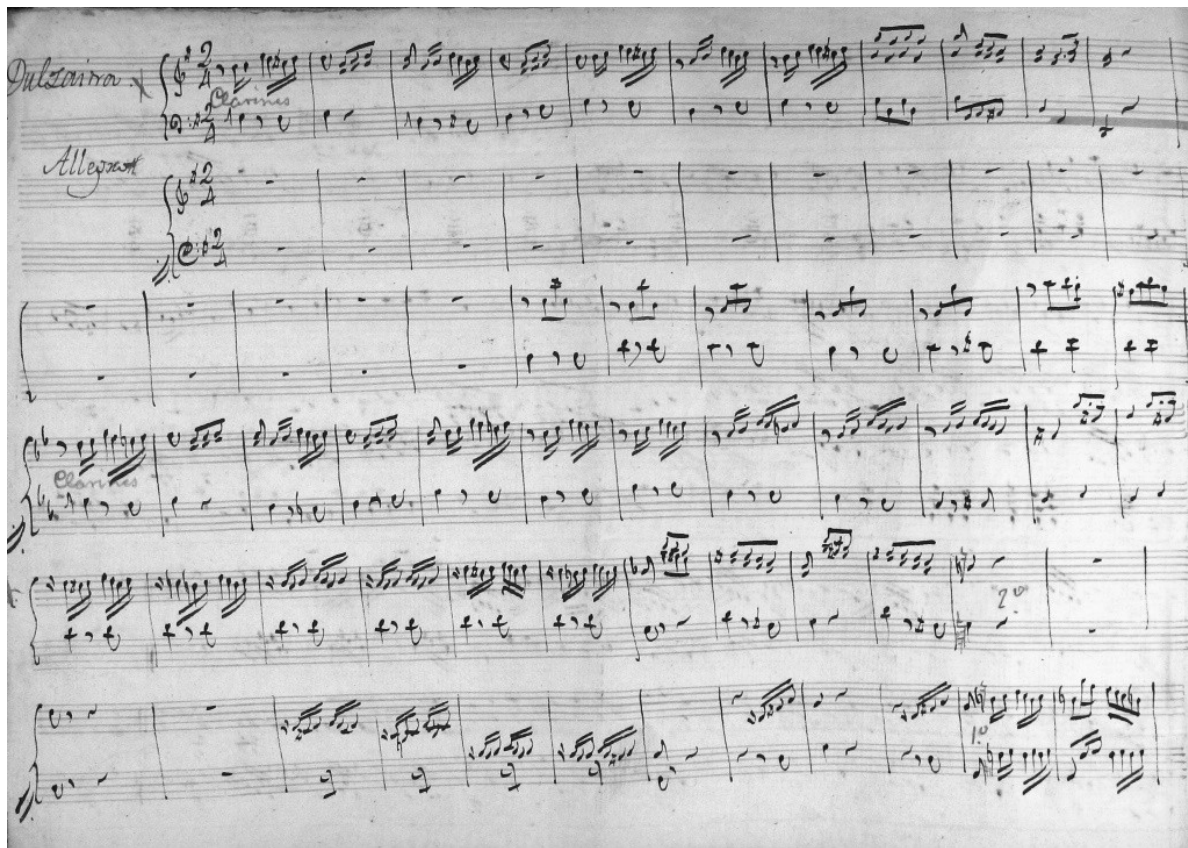 Dulzaina
2
4
Clarines
2
4
Allegrett
2
4
2
4
Clarines
2º
1º